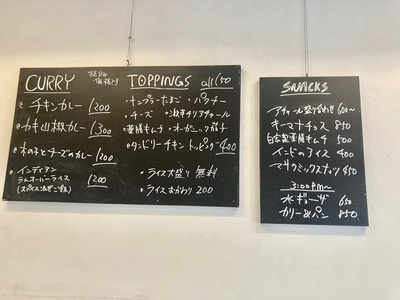 CURRY
税込
価格
チキンカレー 1200
カキ山椒カレー 1300
木の子とチーズのカレー 1200
インディアン
ラムオーバーライス
(スパイス混ぜご飯) 1200
TOPPINGS all 150
・テンプラーたまご ・パクチー
・チーズ ・激辛チリアチャール
・薬膳キムチ ・オーガニック茄子
・タンドリーチキントッピング 400
・ライス大盛り 無料
・ライスおかわり 200
SNACKS
アチャール盛り合わせ 600~
キーマナチョス 850
自家製薬膳キムチ 500
インドのアイス 400
マサラミックスナッツ 450
3:00PM~
水ギョーザ 650
カリー&パン 850